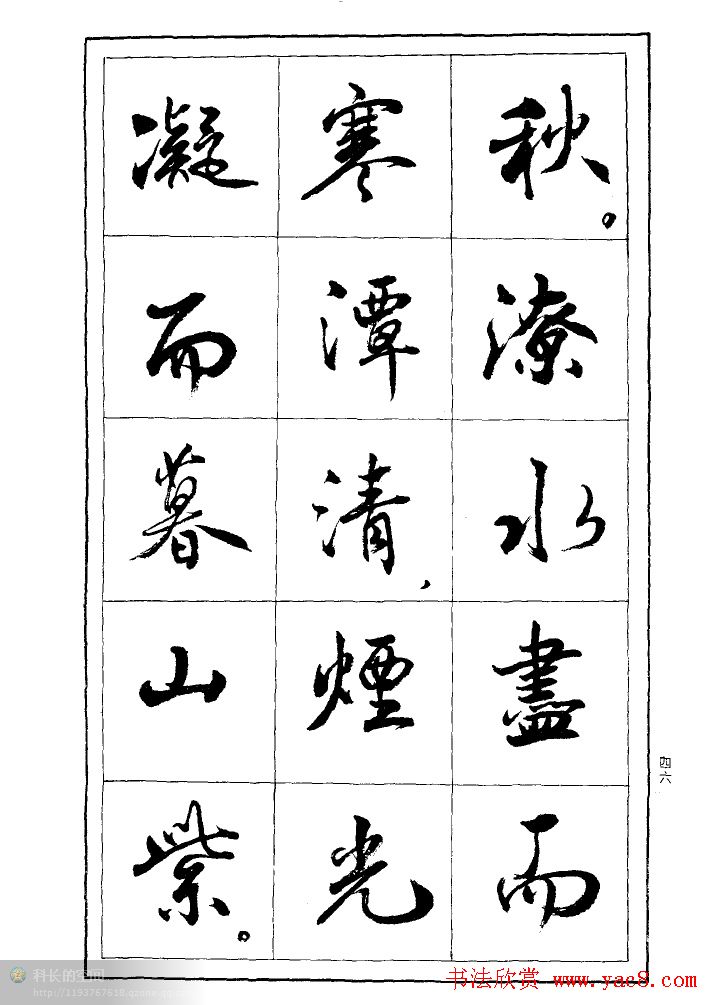 秋。潦水盡而
寒潭清、煙光
凝而暮山紫。
四六
科长的空间
http://1193767618.qzone.qq.com
书法欣赏 www.yac8.com